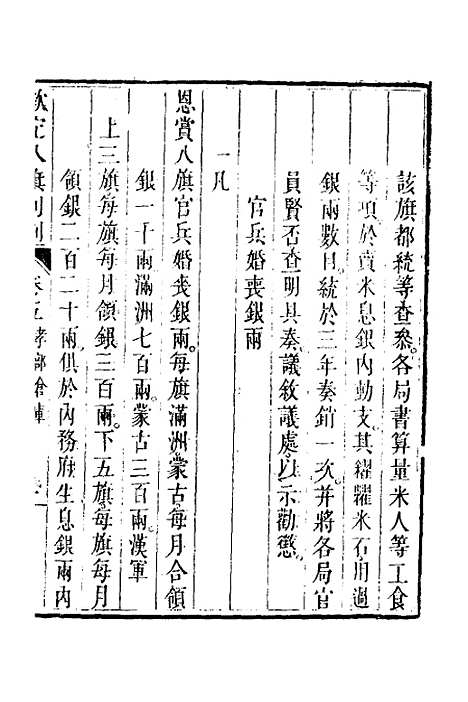 該旗都統等查叅各局書算量米人等工食
等項於賣米息銀內動支其糴糶米石用過
銀兩數目統於三年奏銷一次并將各局官
員賢否查明具奏議敘議處以示勸懲
官兵婚喪銀兩
一凡
恩賞八旗官兵婚喪銀兩每旗滿洲蒙古每月合領
銀一千兩滿洲七百兩蒙古三百兩漢軍
上三旗每旗每月領銀三百兩下五旗每旗每月
領銀二百二十兩俱於內務府生息銀兩內
欽定八旗則例 卷之五孝部倉庫